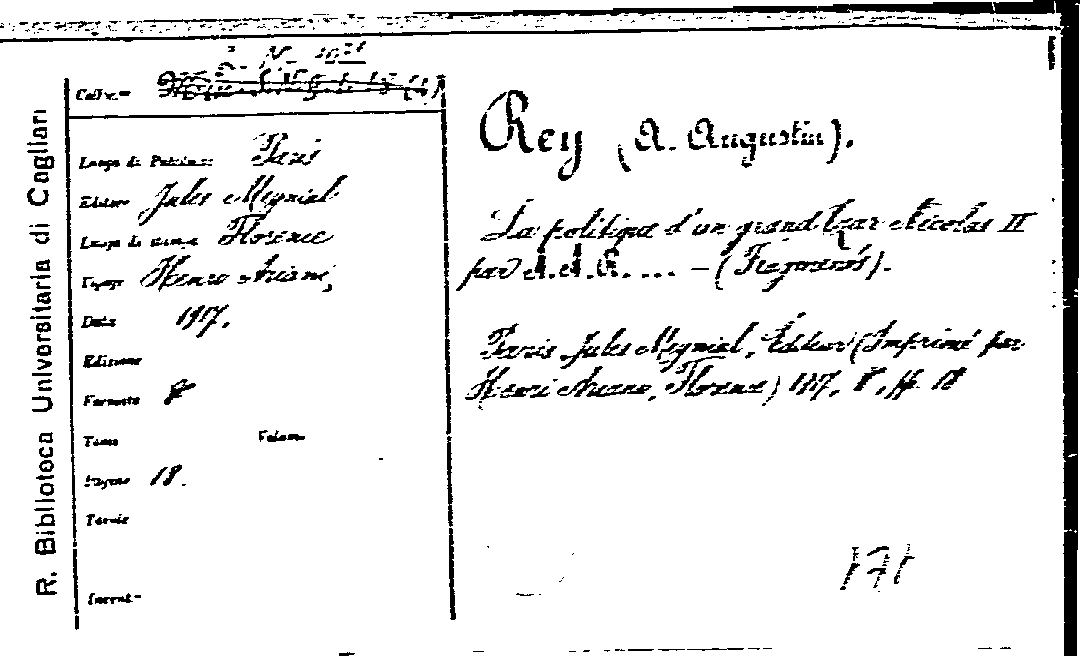 R. Biblioteca Universitaria di Cagliari
Colloc.
Luogo di Pubblicaz. Paris
Editore Jules Meynial
Luogo di stampa Florence
Tipogr. Henri Ariani,
Data 1917.
Edizione
Formato 8°
Tomo Volume
Pagine 18.
Tavole
Invent.
Rey (A. Augustin).
La politique d'un grand Tzar Nicolas II
par A. A. R. .... - (Fragments).
Paris Jules Meynial, Éditeur (Imprimé par
Henri Ariani, Florence) 1917, 8°, pp. 18
171